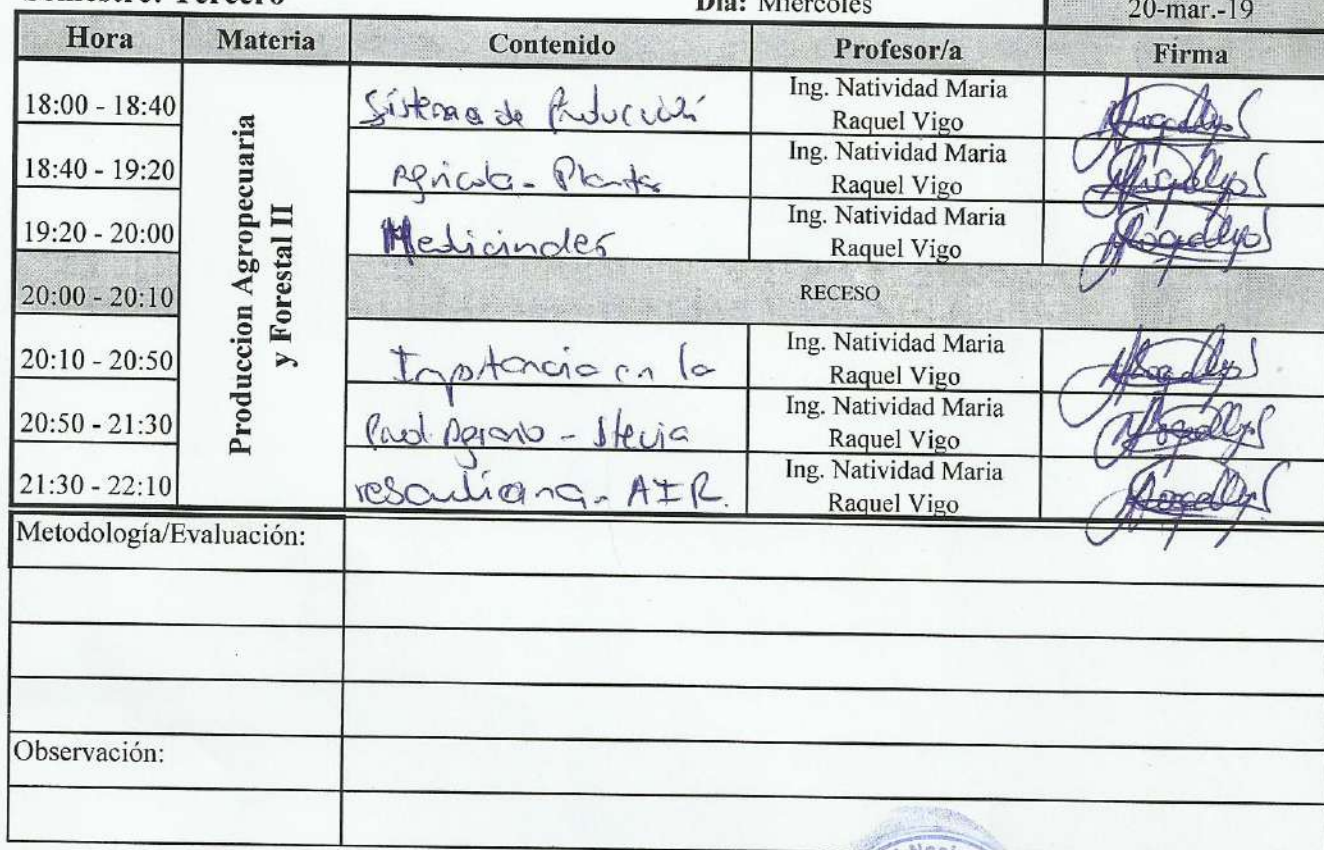 Semestre: Tercero Día: Miércoles 20-mar.-19
Hora Materia Contenido Profesor/a Firma
Produccion Agropecuaria
y Forestal II
18:00 - 18:40 Sistema de Producción Ing. Natividad Maria
Raquel Vigo
18:40 - 19:20 Agricola - Plantas Ing. Natividad Maria
Raquel Vigo
19:20 - 20:00 Medicinales Ing. Natividad Maria
Raquel Vigo
20:00 - 20:10 RECESO
20:10 - 20:50 Importancia en la Ing. Natividad Maria
Raquel Vigo
20:50 - 21:30 Prod. - Stevia Ing. Natividad Maria
Raquel Vigo
21:30 - 22:10 AIR. Ing. Natividad Maria
Raquel Vigo
Metodología/Evaluación:
Observación: